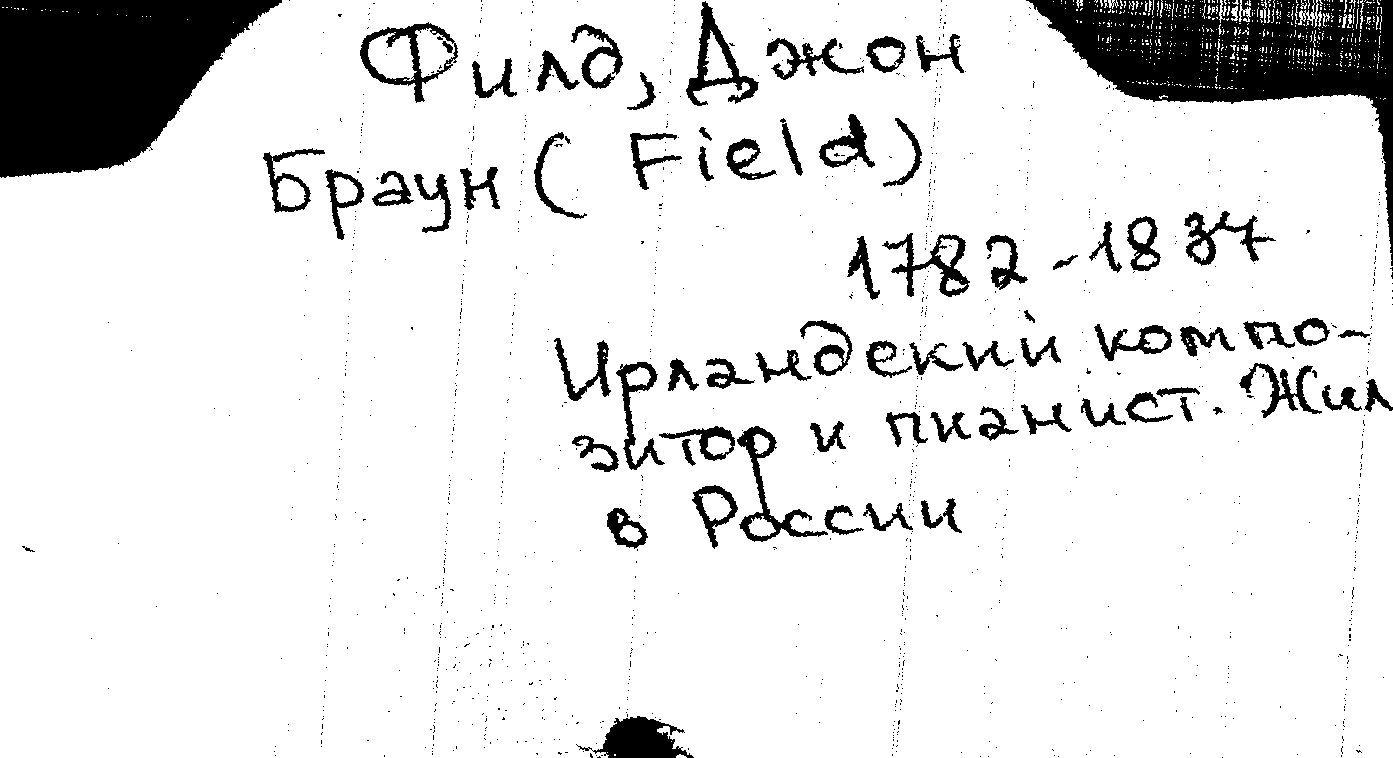 Филд, Джон
Браун (Field)
1782-1837
Ирландский компо-
зитор и пианист. Жил
в России